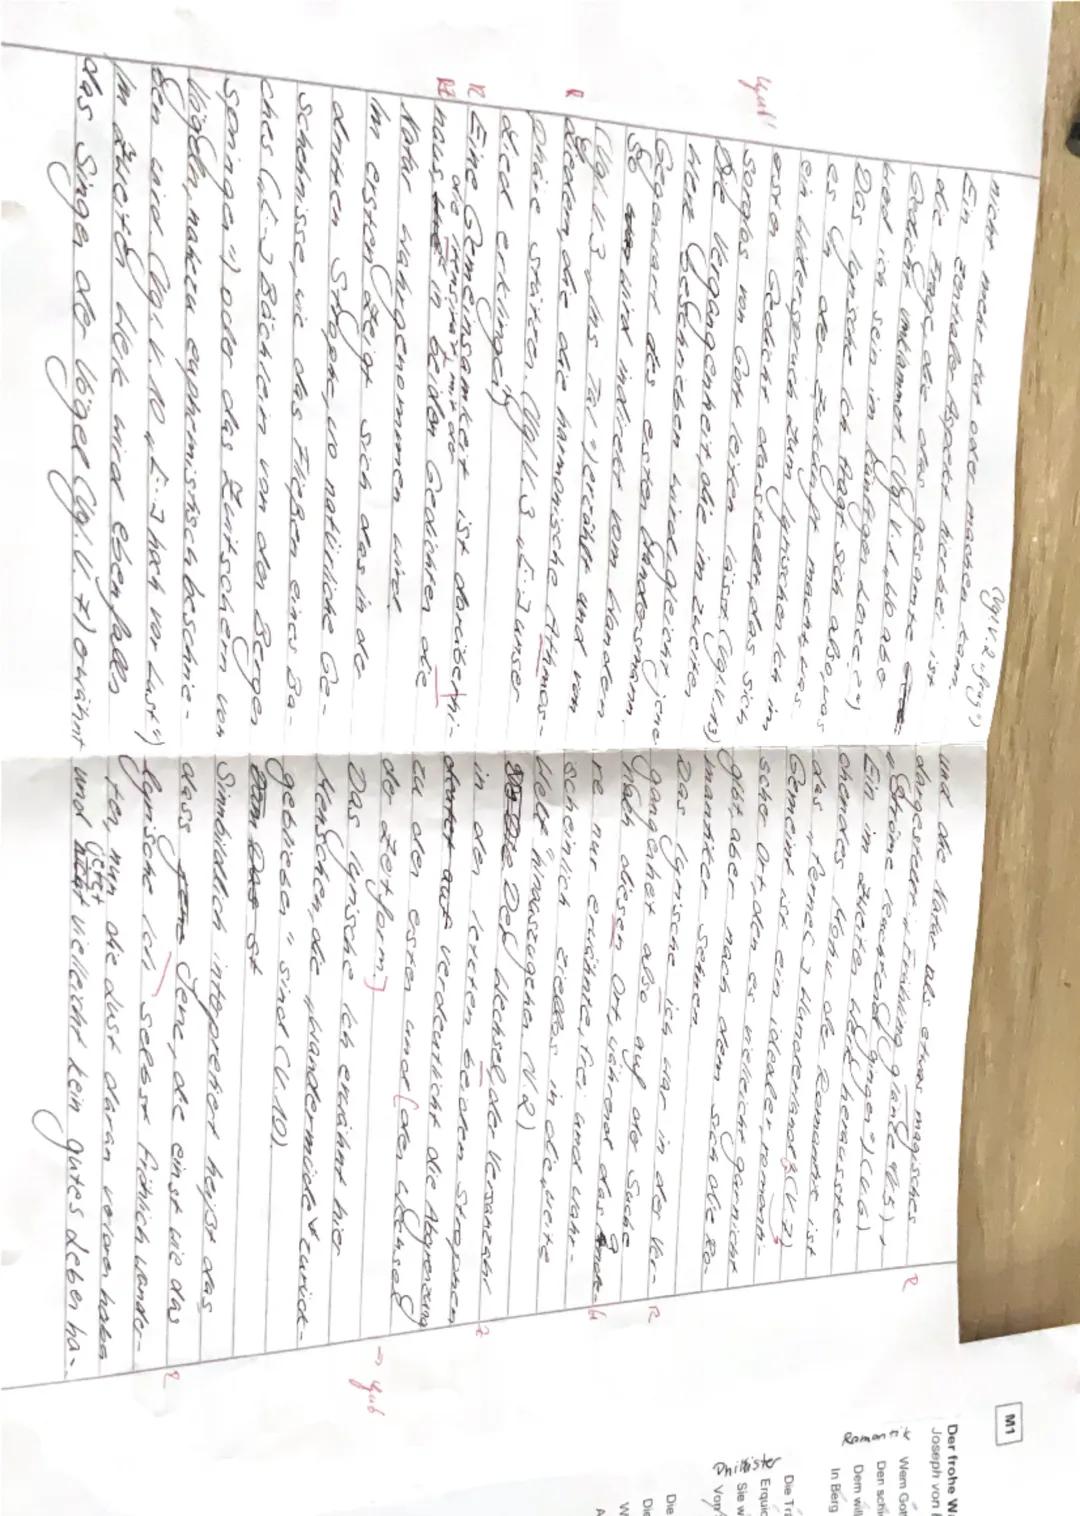 nicht mehr tut oder machen kann.
(vgl. V. 2 „frag")
Ein zentraler Aspekt hierbei ist
die Frage, die das gesamte
Gedicht umrahmt (Vgl. V. 1 „Wo aber
werd ich sein im künftgen Lenze?")
Das lyrische Ich fragt sich also, was
es in der Zukunft macht, was
ein Widerspruch zum lyrischen Ich im
ersten Gedicht darstellt, das sich
sorglos von Gott leiten lässt (Vgl. V. 13)
Gut!
Die Vergangenheit, die im zweiten
Werk beschrieben wird, gleicht jene
Gegenwart des ersten Wandersmann.
So wird indirekt vom Wandern
(Vgl. V. 3 „ins Tal") erzählt und von
Liedern, die die harmonische Athmos-
R
phäre stützen (Vgl. V. 3 „[...] unser
Lied erklinge")
Eine Gemeinsamkeit ist darüber hi-
R
naus, die in beiden Gedichten die
Bz
Natur wahrgenommen wird.
Im ersten zeigt sich das in der
dritten Strophe, wo natürliche Ge-
schehnisse, wie das Fließen eines Ba-
ches („[...] Bächlein von den Bergen
springen") oder das Zwitschern von
Vögeln, nahezu euphemistisch beschrie-
ben wird (Vgl. V. 10 „[...] hoch vor Lust")
Im zweiten Werk wird ebenfalls
das Singen der Vögel (Vgl. V. 7) erwähnt
und die Natur als etwas magisches
R
dargestellt: „Frühling glänzte" (V. 5) +
„Ströme leuchtend gingen") (V. 6)
Ein im zweiten Werk herausste-
chendes Motiv der Romantik ist
das „ferne[] Wunderland" (V. 7)
Gemeint ist ein idealer romanti-
scher Ort, den es vielleicht garnicht
gibt, aber nach dem sich die Ro-
mantiker sehnen
Das lyrische ich war in der Ver-
gangenheit also auf der Suche
R
nach diesen Ort, während das
Gr
re nur erwähnte, frei und wahr-
scheinlich ziellos in die „weite
Welt" hinauszugehen (V. 2)
Der Wechsel der Versanzahl
in den letzten beiden Strophen
verdeutlicht die Abgrenzung
zu den ersten und (den Wechsel
der Zeitform]
→ Gut
Das lyrische Ich erwähnt hier
Menschen, die „wandermüde zurück-
geblieben" sind (V. 10).
Sinnbildlich interpretiert heißt das
dass jene, die einst wie das
R
lyrische Ich selbst fröhlich wander-
ten, nun die Lust daran verloren haben
und (jetzt) vielleicht kein gutes Leben ha-
M1
Der frohe W
Joseph von
Romantik
Wem Got
Den schi
Dem will
In Berg
Die Trä
Philister
Erquic
Sie w
Von
Die
Die
W
A